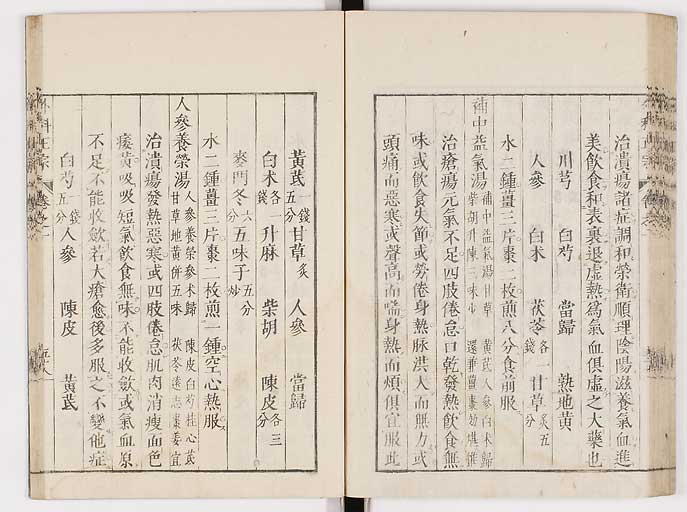 治潰瘍諸症調和榮衛順理陰陽滋養氣血進
美飲食和表裏退虛熱爲氣血俱虛之大藥也
川芎 白芍 當歸 熟地黃
人參 白朮 茯苓各一錢 甘草炙五分
水二鍾薑三片棗二枚煎八分食前服
補中益氣湯 補中益氣湯甘草 黃芪人參白朮歸
柴胡升陳三味 還兼薑棗
治瘡瘍元氣不足四肢倦怠口乾發熱飲食無
味或飲食失節或勞倦身熱脉洪大而無力或
頭痛而惡寒或聲高而喘身熱而煩俱宜服此
黃芪一錢五分 甘草炙 人參 當歸
白朮各一錢 升麻 柴胡 陳皮各三分
麥門冬六分 五味子五分炒
水二鍾薑三片棗二枚煎一鍾空心熱服
人參養榮湯 人參養榮參朮歸 陳皮白芍桂心芪
甘草地黃併五味 茯苓遠志棗薑宜
治潰瘍發熱惡寒或四肢倦怠肌肉消瘦面色
痿黃吸吸短氣飲食無味不能收斂或氣血原
不足不能收斂若大瘡愈後多服之不變他症
白芍一錢五分 人參 陳皮 黃芪
外科正宗 卷之一 五十八